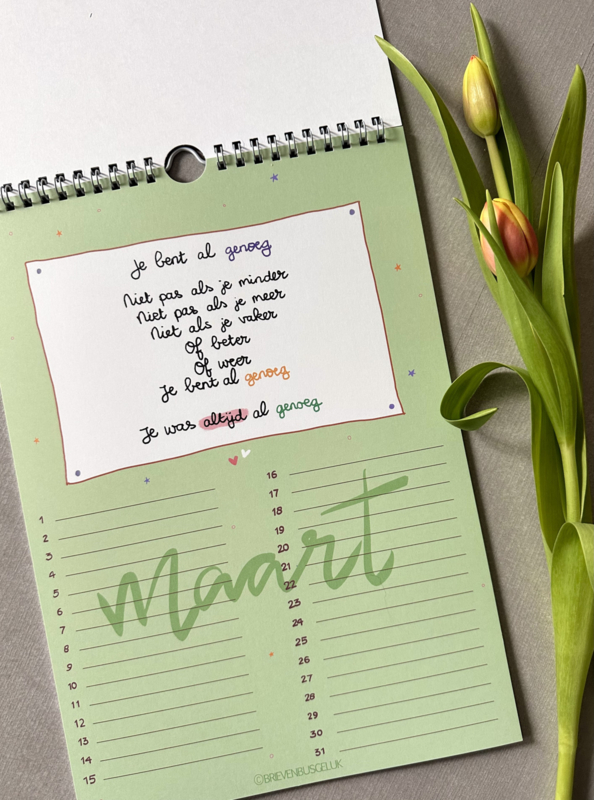 Je bent al genoeg
Niet pas als je minder
Niet pas als je meer
Niet als je vaker
Of beter
Of weer
Je bent al genoeg
Je was altijd al genoeg
Maart
1
2
3
4
5
6
7
8
9
10
11
12
13
14
15
16
17
18
19
20
21
22
23
24
25
26
27
28
29
30
31
©BRIEVENBUSGELUK